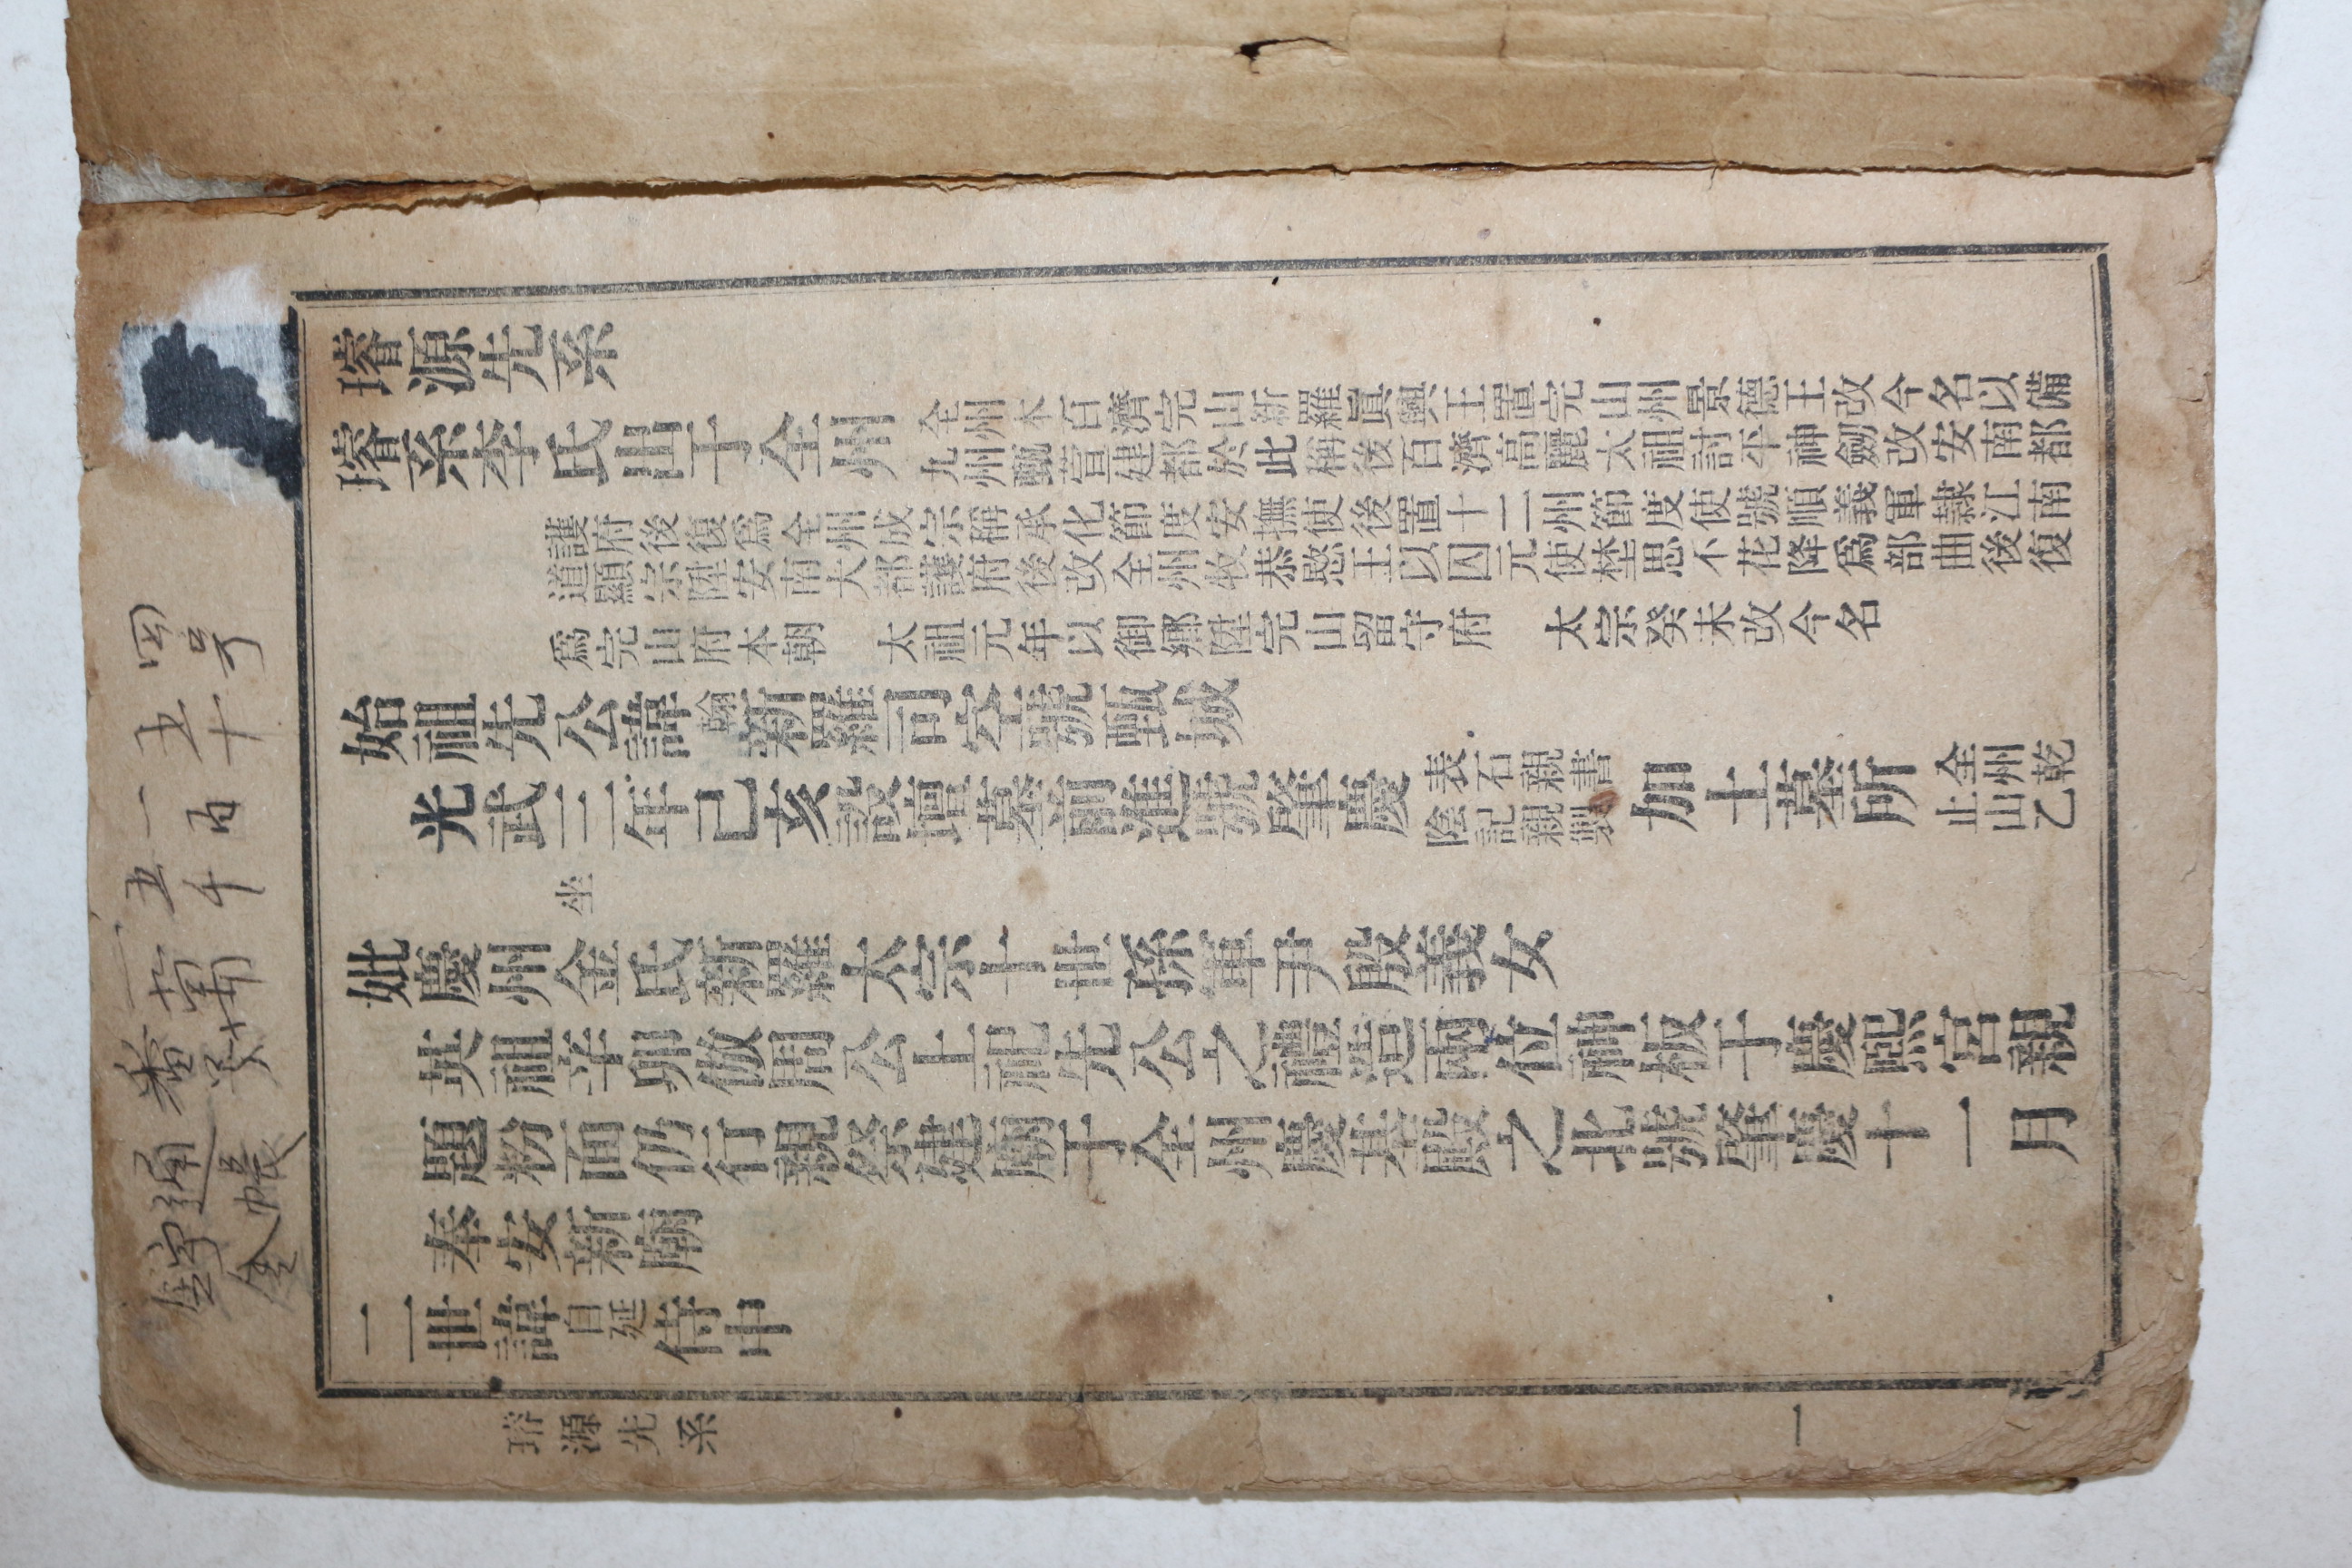 四号
五十
一百
五千
一萬
番号
通帳
璿源先系
璿系李氏出于全州
全州本百濟完山新羅眞興王置完山州景德王改今名以備
九州甄萱建都於此稱後百濟高麗太祖討平神劒改安南都
護府後復爲全州成宗稱承化節度安撫使後置十二州節度使號順義軍隷江南
道顯宗陞安南大都護府後改全州牧恭愍王以囚元使埜思不花降爲部曲後復
爲完山府本朝 太祖元年以御鄕陞完山留守府 太宗癸未改今名
始祖先公諱翰新羅司空號甄城
光武三年己亥設壇墓前進號肇慶表石親書陰記親製加土墓所全州乾止山乙
坐
妣慶州金氏新羅太宗十世孫軍尹殷義女
英祖辛卯倣周公上祀先公之禮造兩位神板于慶熙宮親
題粉面仍行親祭建廟于全州慶基殿之北號肇慶十一月
奉安新廟
二世諱自延侍中
璿源先系
一